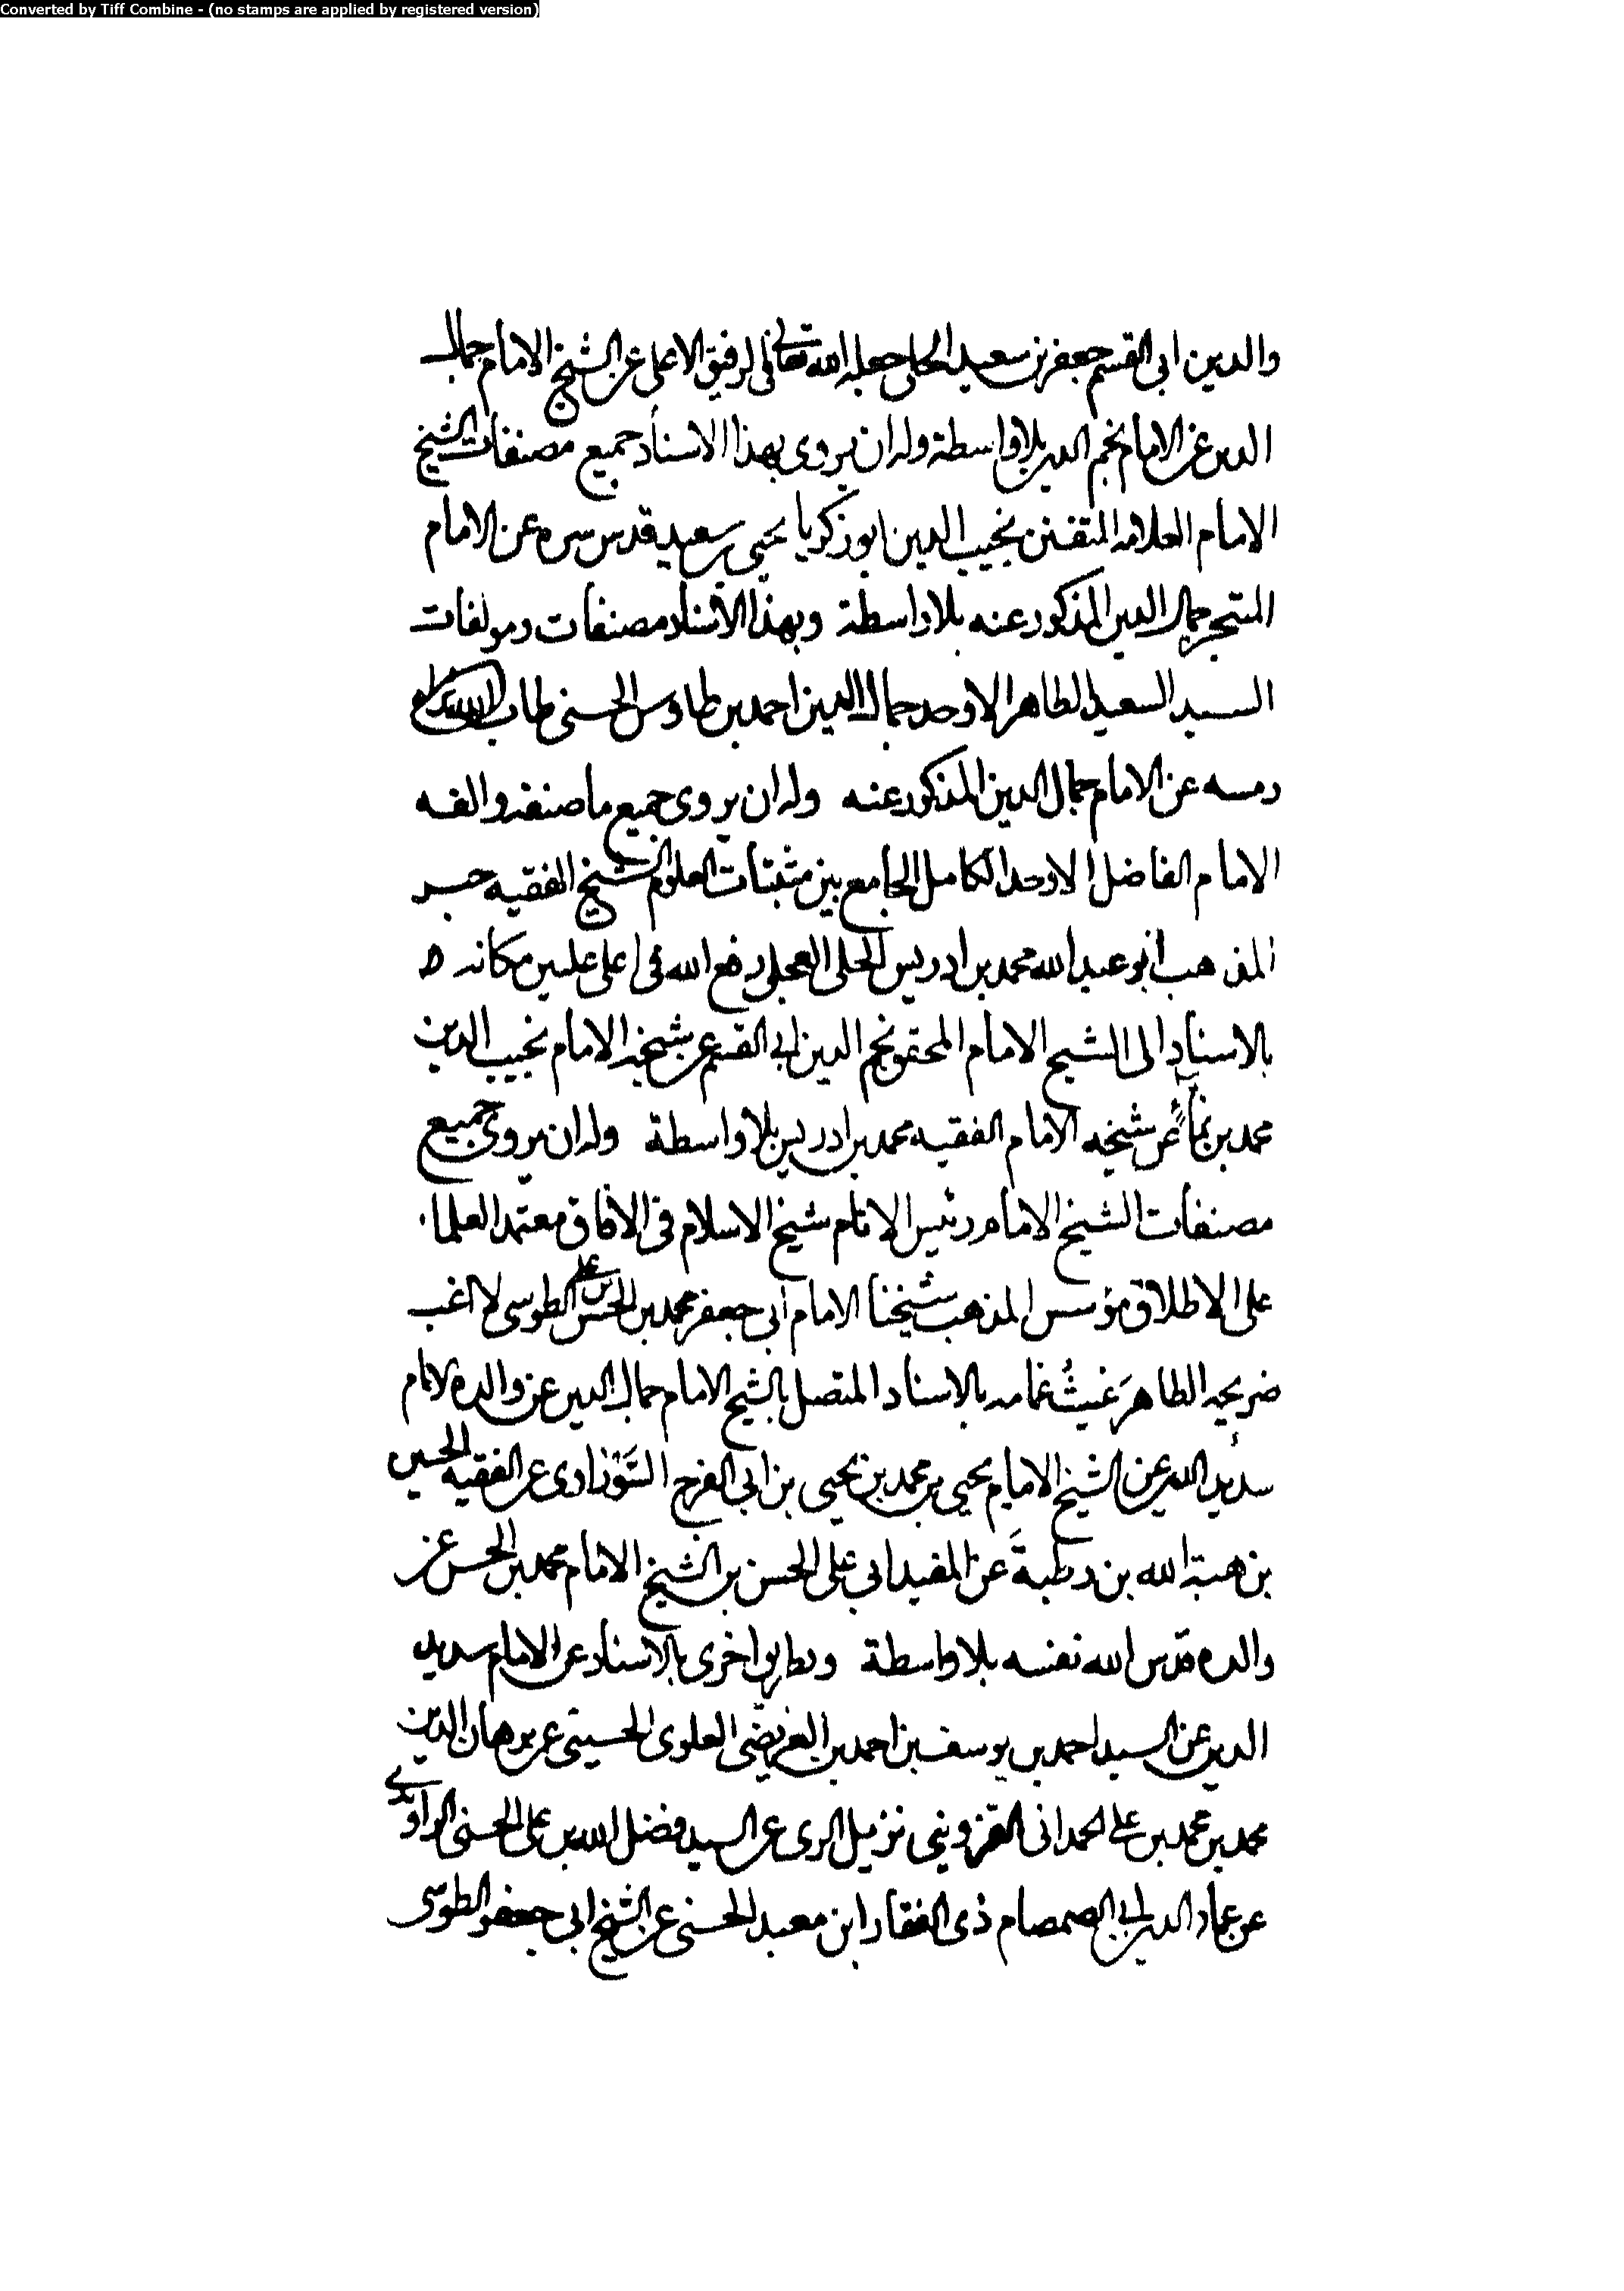 Converted by Tiff Combine - (no stamps are applied by registered version)
والدين ابى القسم جعفر بن سعيد الحلى جعله الله تعالى فى الرفيق الاعلى عن الشيخ الامام جمال
الدين عن الامام نجم الدين بلا واسطة وله ان يروى بهذا الاسناد جميع مصنفات الشيخ
الامام العلامه المتفنن نجيب الدين ابو زكريا يحيى بن سعيد قدس سره عن الامام
المتبحر جمال الدين المذكور عنه بلا واسطة وبهذا الاسناد مصنفات ومولفات
السيد السعيد الطاهر الاوحد جمال الدين احمد بن طاوس الحسنى طاب
رمسه عن الامام جمال الدين المذكور عنه وله ان يروى جميع ما صنفه والفه
الامام الفاضل الاوحد الكامل الجامع بين مثبتات العلوم الشيخ الفقيه حبر
المذهب ابو عبد الله محمد بن ادريس الحلى العجلى رفع الله فى اعلى عليين مكانه
بالاسناد الى الشيخ الامام المحقق نجم الدين ابى القسم عن شيخه الامام نجيب الدين
محمد بن نما عن شيخه الامام الفقيه محمد بن ادريس بلا واسطة وله ان يروى جميع
مصنفات الشيخ الامام رئيس الانام شيخ الاسلام فى الافاق معتمد العلماء
على الاطلاق مؤسس المذهب شيخنا الامام ابى جعفر محمد بن الحسن بن على الطوسى لا اغب
ضريحه الطاهر غيثُ غمامه بالاسناد المتصل بالشيخ الامام جمال الدين عن والده الامام
سديد الدين عن الشيخ الامام يحيى بن محمد بن يحيى بن ابى الفرج السَّوْرَاوى عن الفقيه الحسين
بن هبة الله بن رطبةَ عن المفيد ابى على الحسن بن الشيخ الامام محمد بن الحسن عن
والده قدس الله نفسه بلا واسطة وبطريق اخرى بالاسناد عن الامام سديد
الدين عن السيد احمد بن يوسف بن احمد بن العريضى العلوى الحسينى عن برهان الدين
محمد بن محمد بن على الحمدانى القزوينى نزيل الرى عن السيد فضل الله بن على الحسنى الراوندى
عن عماد الدين ابى الصمصام ذى الفقار ابن معبد الحسنى عن الشيخ ابى جعفر الطوسى